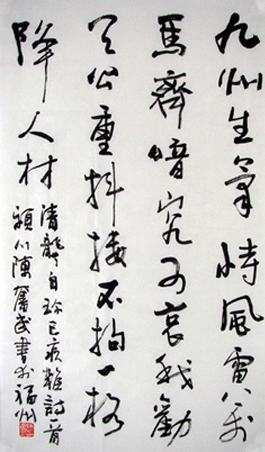 九州生氣恃風雷萬
馬齊喑究可哀我勸
天公重抖擻不拘一格
降人材
清龔自珍己亥雜詩一首
潁川陳奮武書於福州